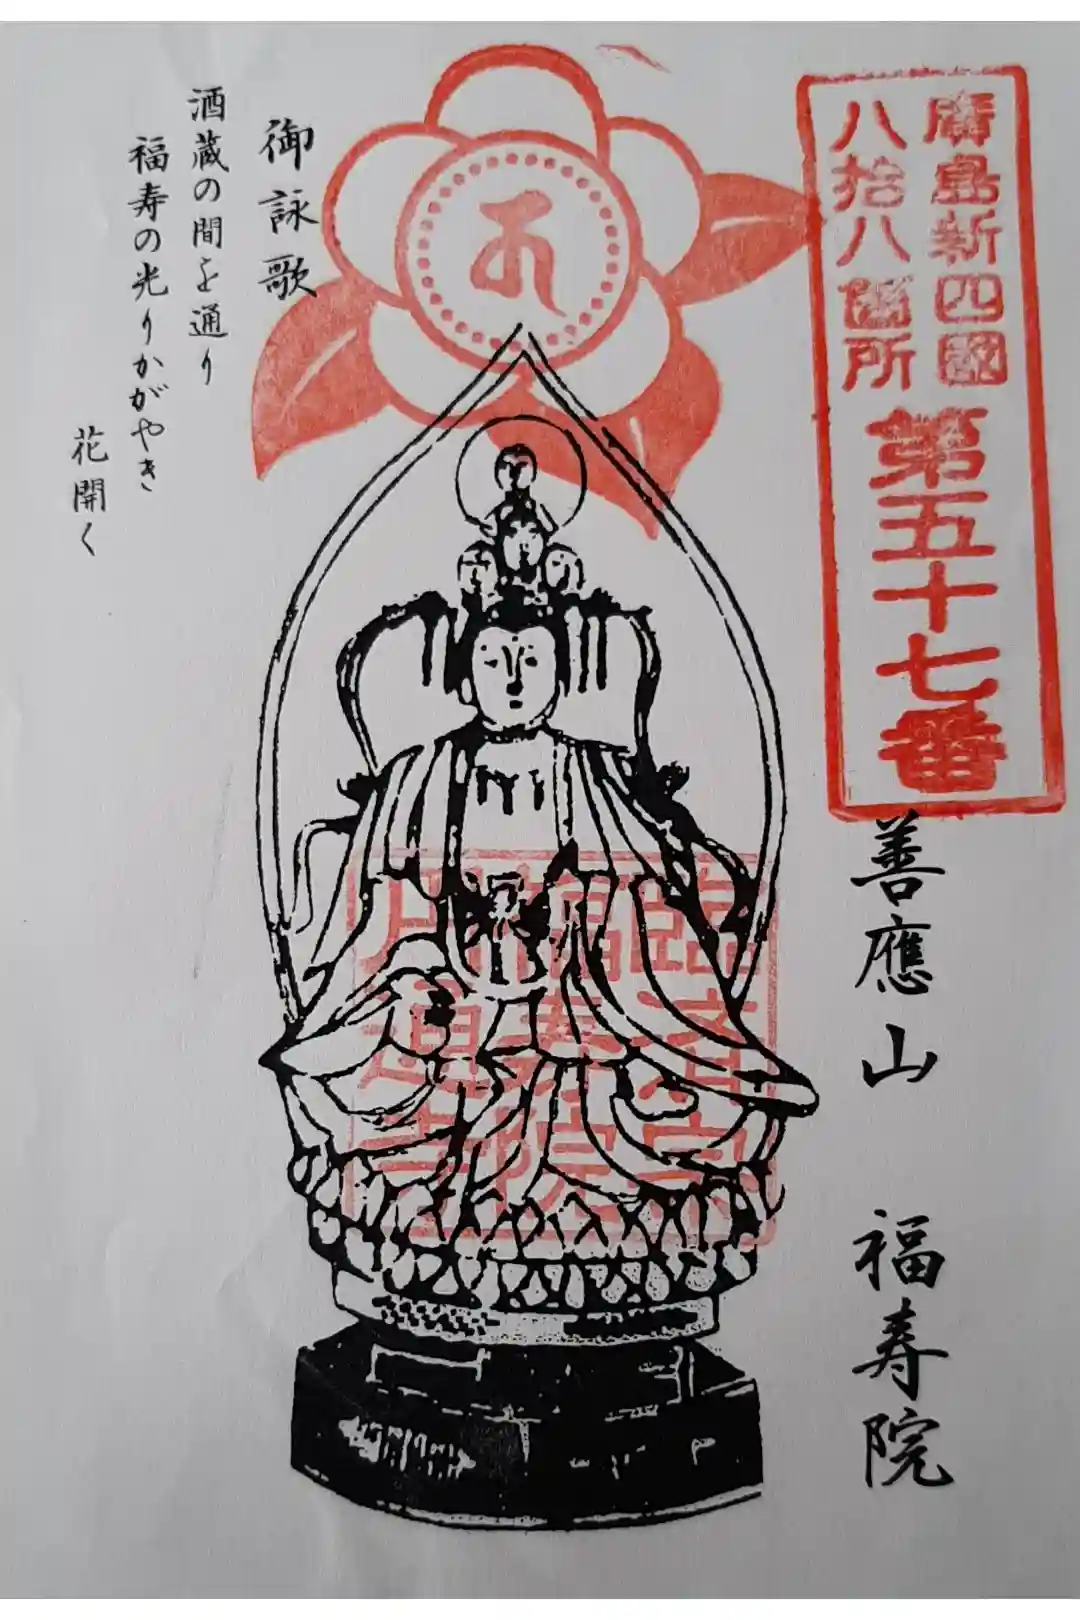 廣島新四國
八拾八箇所
第五十七番
善應山 福寿院
臨済宗
福寿院
円通寺
御詠歌
酒蔵の間を通り
福寿の光りかがやき
花開く